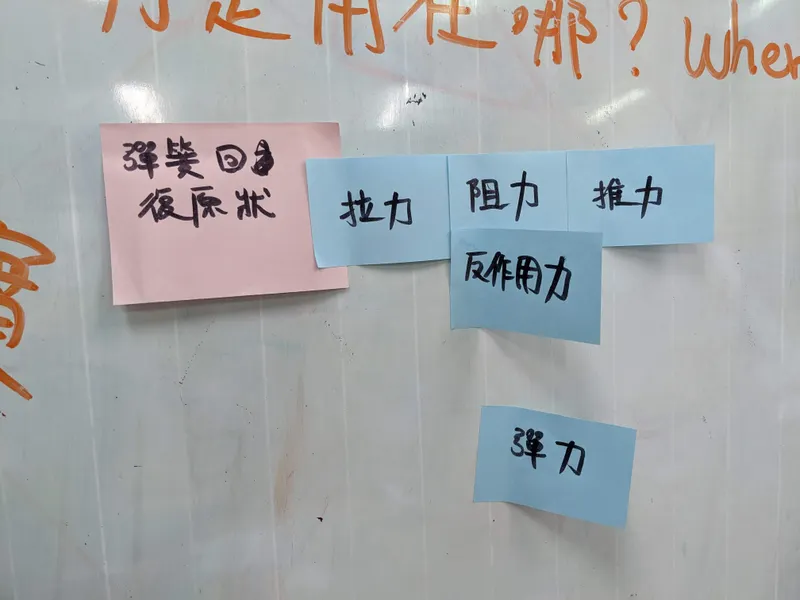 力是用在哪? Wher
彈簧回
復原狀
拉力
阻力
推力
反作用力
彈力